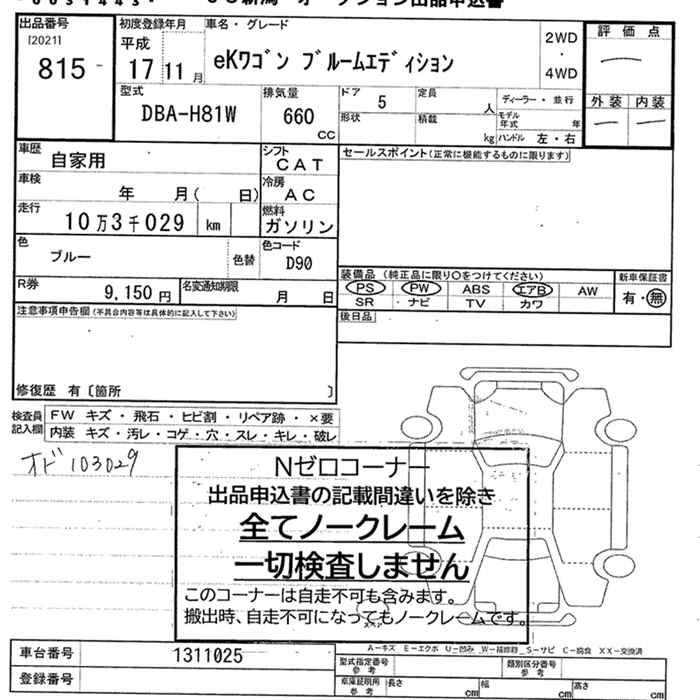 出品番号
[2021]
815
初度登録年月
平成
17 11 月
車名・グレード
eKワゴン ブルームエディション
2WD
・
4WD
評価点
外装 内装
型式
DBA-H81W
排気量
660
cc
ドア 5
定員 人
ディーラー・並行
形状
積載 kg
モデル年式 年
ハンドル 左・右
車歴
自家用
シフト
CAT
セールスポイント(正常に機能するものに限ります)
車検
年 月( 日)
冷房
AC
走行
10万3千029 km
燃料
ガソリン
色
ブルー
色替
色コード
D90
R券
9,150 円
名変通知期限
月 日
装備品 (純正品に限り○をつけてください)
PS PW ABS エアB AW
SR ・ナビ TV カワ
新車保証書
有・無
後日品
注意事項申告欄(不具合内容等は具体的に記入して下さい)
修復歴 有〔箇所 〕
検査員記入欄
FW キズ・飛石・ヒビ割・リペア跡・×要
内装 キズ・汚レ・コゲ・穴・スレ・キレ・破レ
オド 103029
Nゼロコーナー
出品申込書の記載間違いを除き
全てノークレーム
一切検査しません
このコーナーは自走不可も含みます。
搬出時、自走不可になってもノークレームです。
A-キズ E-エクボ U-凹み W-補修跡 S-サビ C-腐食 XX-交換済
車台番号
1311025
登録番号
型式指定番号
参考
類別区分番号
参考
車庫証明用
参考
長さ cm
幅 cm
高さ cm